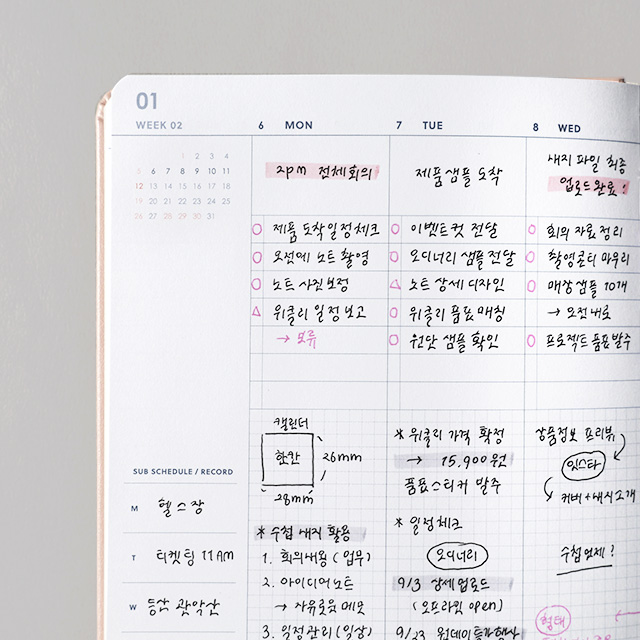 01
WEEK 02
6 MON
7 TUE
8 WED
1 2 3 4
5 6 7 8 9 10 11
12 13 14 15 16 17 18
19 20 21 22 23 24 25
26 27 28 29 30 31
2pm 전체회의
제품샘플 도착
내지 파일 최종
업로드완료!
제품 도착일정체크
오전에 노트 촬영
노트 사진보정
위클리 일정보고
→ 보류
이벤트컷 전달
오디너리 샘플전달
노트 상세 디자인
위클리 품표매칭
원단 샘플 확인
회의 자료 정리
촬영콘티 마무리
매장샘플 10개
→ 오전내로
프로젝트품표발주
캘린더
한칸
26mm
28mm
*수첩 내지 활용
1. 회의내용 (업무)
2. 아이디어노트
→ 자유로운 메모
3. 일정관리 (일상)
* 위클리 가격 확정
→ 15,900원
품표스티커 발주
* 일정체크
오디너리
9/3 상세업로드
(오프라인 open)
9/23 원데이특가행사
상품정보 프리뷰
인스타
커버+내지소개
수첩언제?
형태
SUB SCHEDULE / RECORD
M 헬스장
T 티켓팅 11AM
W 등산 관악산